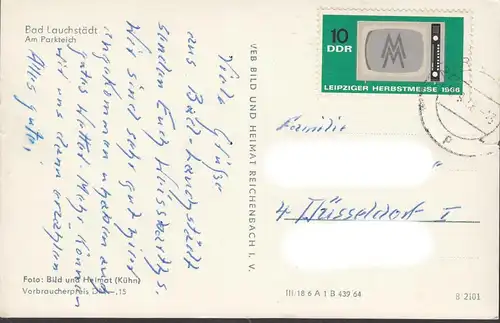 Bad Lauchstädt
Am Parkteich
Viele Grüße
aus Bad-Lauchstädt
senden Euch
Wir sind sehr gut hier
angekommen u. haben auch
gutes Wetter. Mehr können
wir uns dann erzählen
Alles Gute!
Foto: Bild und Heimat (Kühn)
Verbraucherpreis DM —,15
VEB BILD UND HEIMAT REICHENBACH I. V.
10
DDR
LEIPZIGER HERBSTMESSE 1966
Familie
4 Düsseldorf I
III/18 6 A 1 B 439 64
B 2101